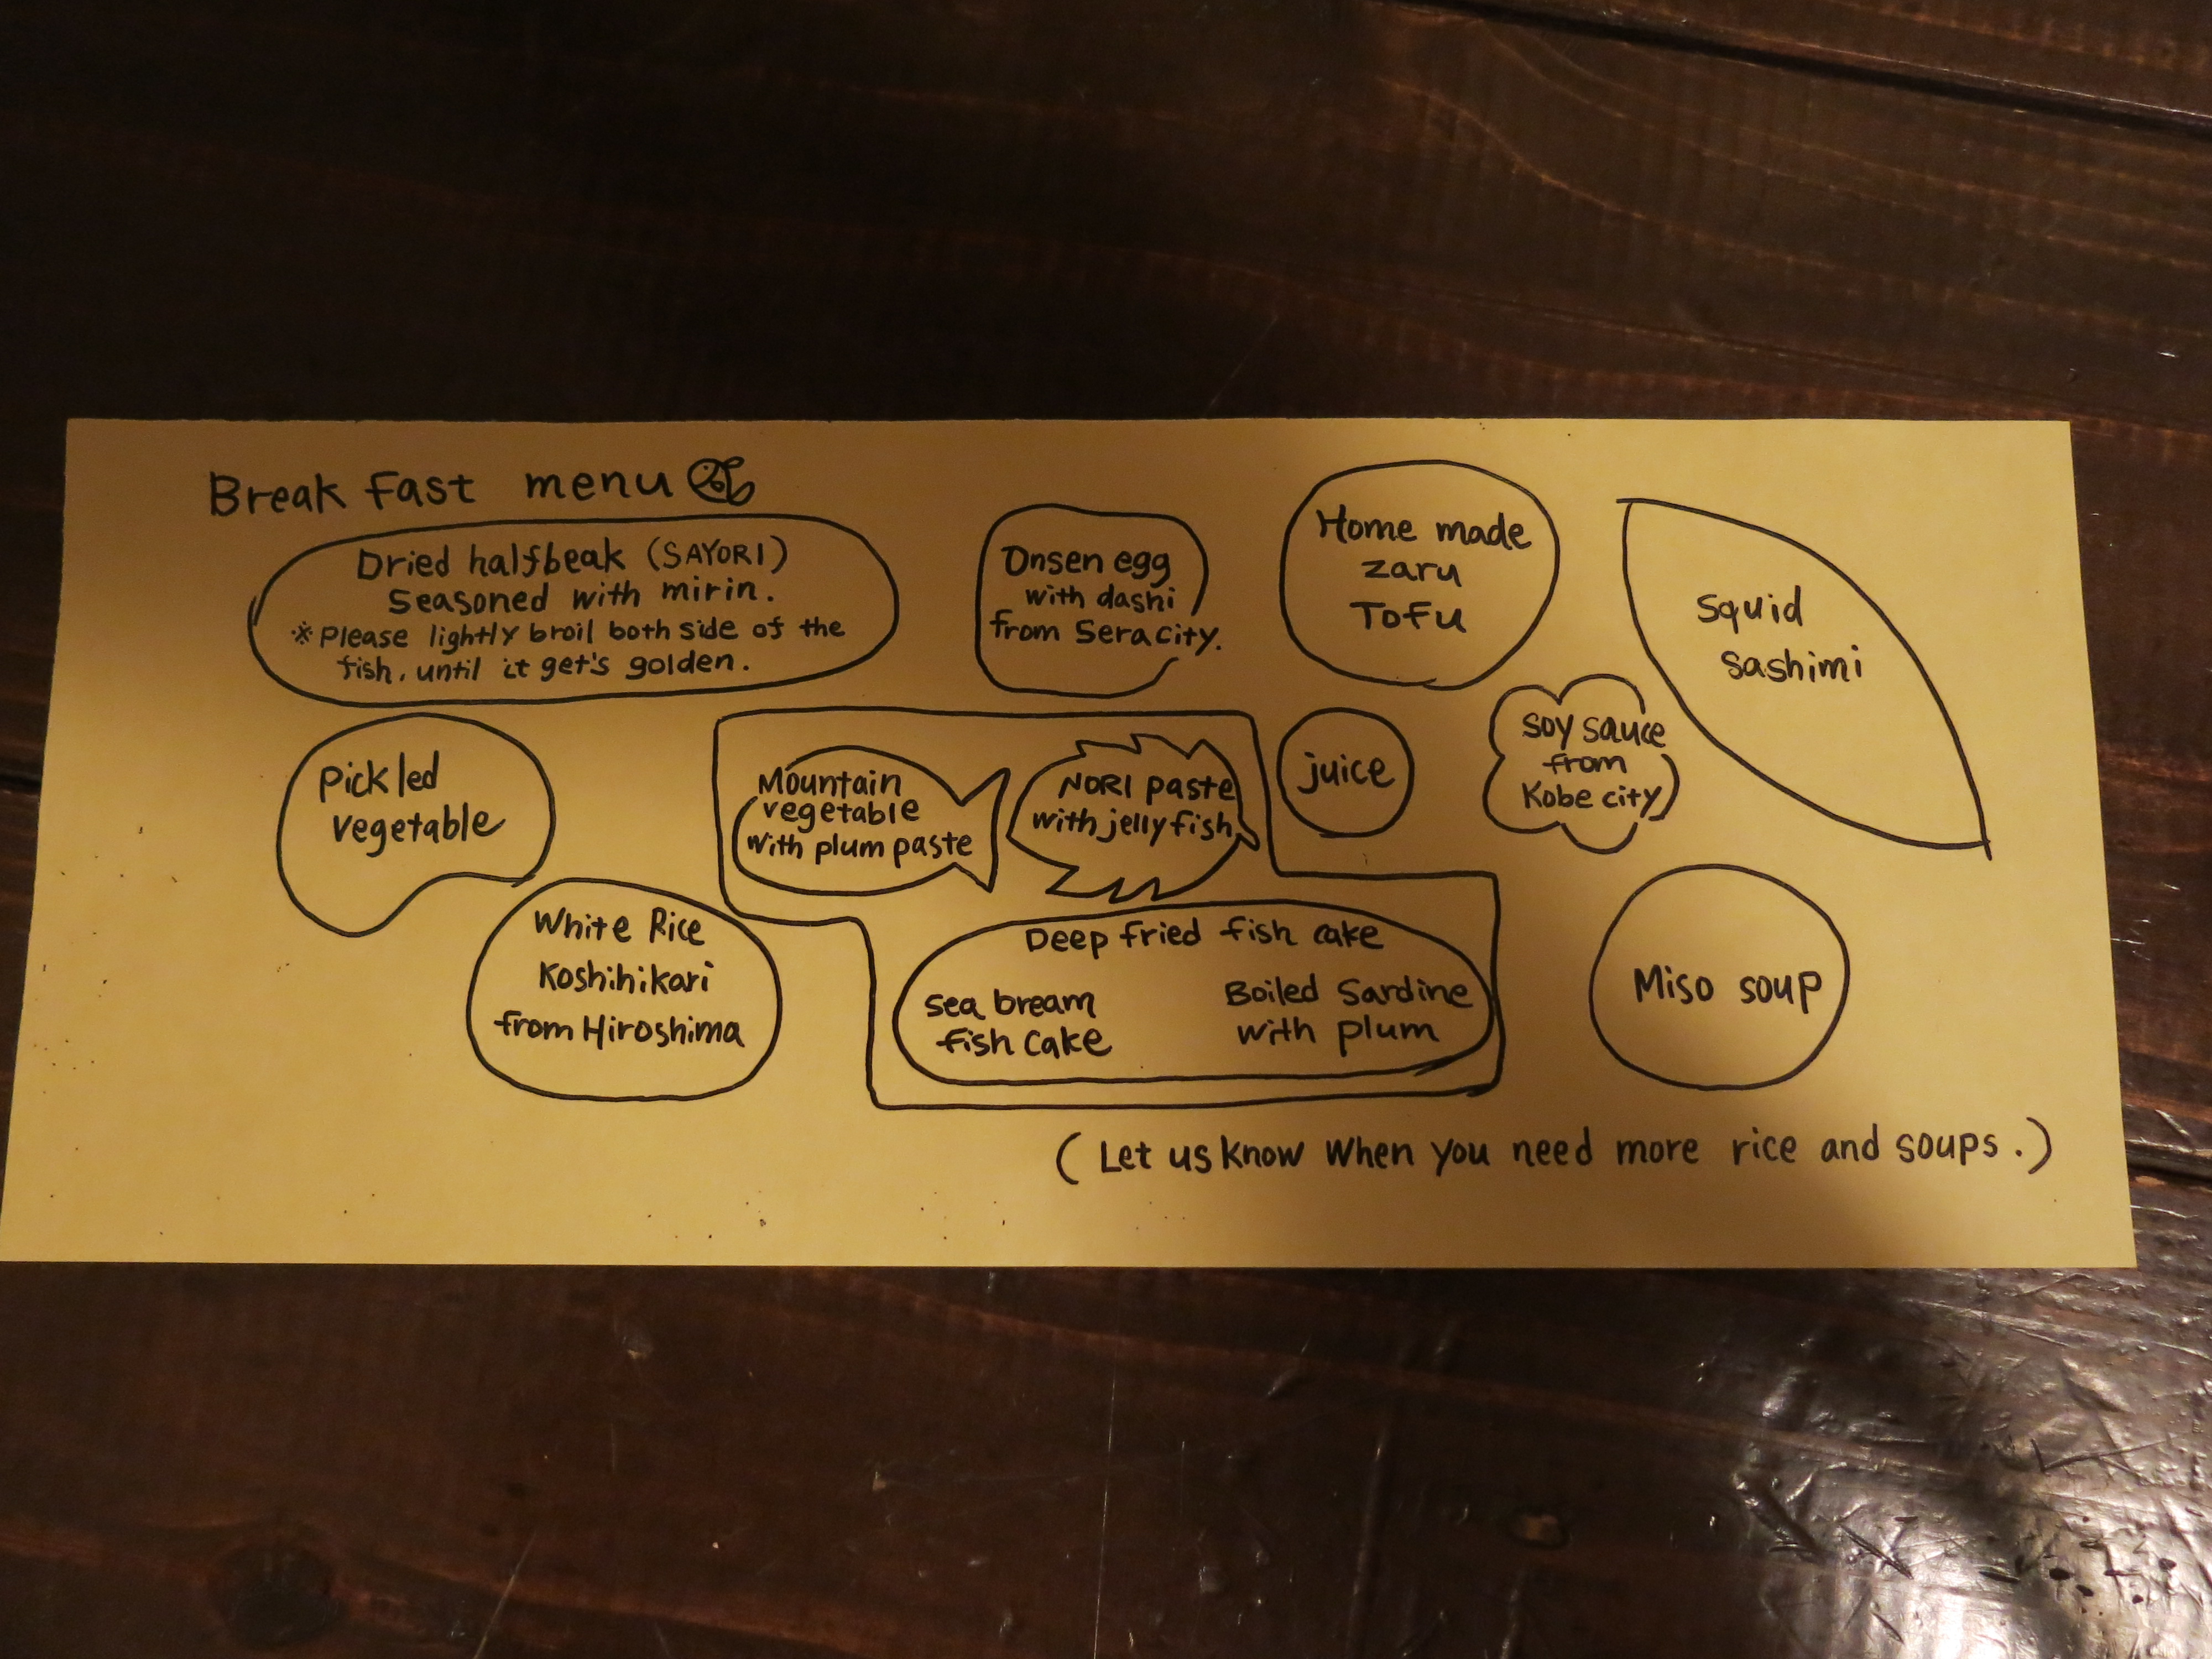 Break fast menu
Dried halfbeak (SAYORI)
Seasoned with mirin.
※Please lightly broil both side of the
fish, until it get's golden.
Onsen egg
with dashi
from Sera city.
Home made
zaru
Tofu
Squid
Sashimi
Pickled
vegetable
Mountain
vegetable
with plum paste
NORI paste
with jelly fish
juice
Soy sauce
from
Kobe city
White Rice
Koshihikari
from Hiroshima
Deep fried fish cake
Sea bream
fish cake
Boiled Sardine
with plum
Miso soup
(Let us know when you need more rice and soups.)